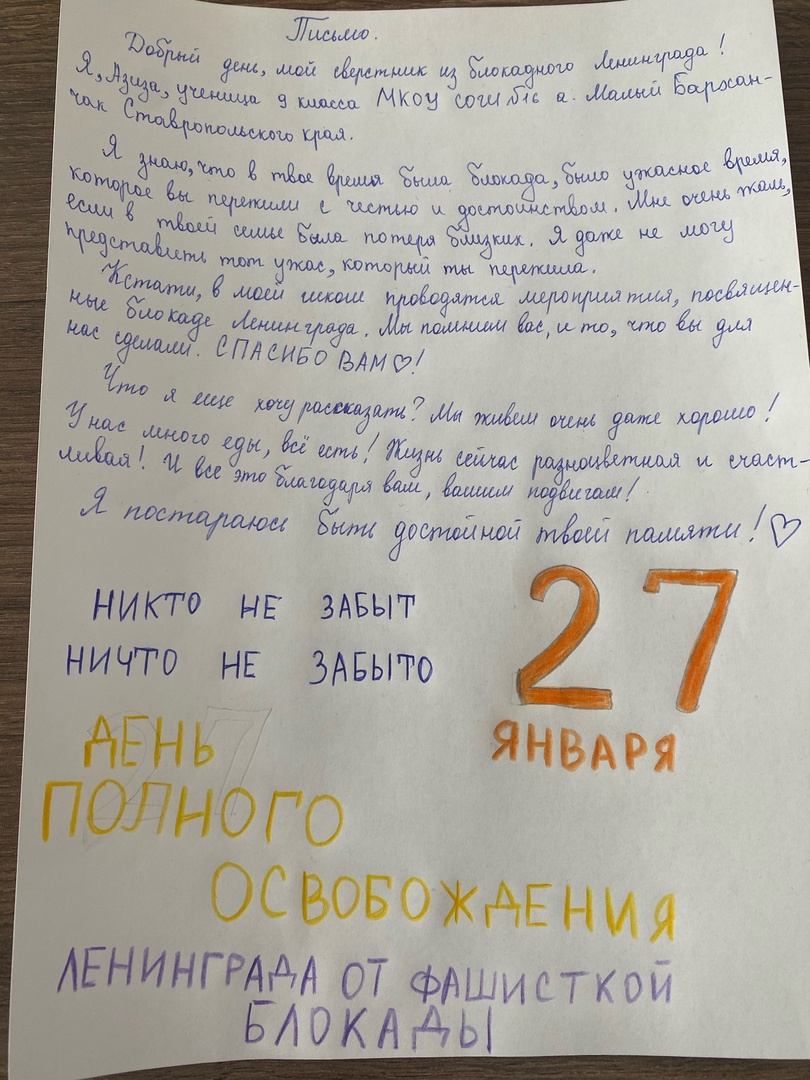 Письмо.
Добрый день, мой сверстник из блокадного Ленинграда!
Я, Азиза, ученица 9 класса МКОУ СОШ №16 а. Малый Бархан-
чак Ставропольского края.
Я знаю, что в твое время была блокада, было ужасное время,
которое вы пережили с честью и достоинством. Мне очень жаль,
если в твоей семье была потеря близких. Я даже не могу
представить тот ужас, который ты пережила.
Кстати, в моей школе проводятся мероприятия, посвящен-
ные блокаде Ленинграда. Мы помним вас, и то, что вы для
нас сделали. СПАСИБО ВАМ♡!
Что я еще хочу рассказать? Мы живем очень даже хорошо!
У нас много еды, всё есть! Жизнь сейчас разноцветная и счаст-
ливая! И все это благодаря вам, вашим подвигам!
Я постараюсь быть достойной твоей памяти!♡
НИКТО НЕ ЗАБЫТ
НИЧТО НЕ ЗАБЫТО
27
ЯНВАРЯ
ДЕНЬ
ПОЛНОГО
ОСВОБОЖДЕНИЯ
ЛЕНИНГРАДА ОТ ФАШИСТКОЙ
БЛОКАДЫ